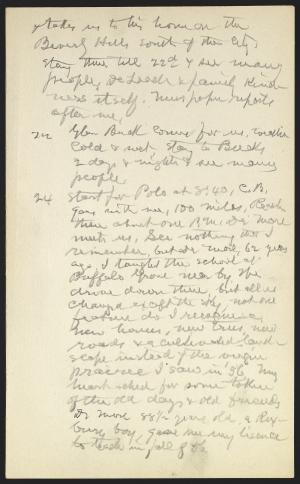 takes us to his home on the
Beverl Hills South of the City
Stay there till 22d & see many
people, De Loach & family kind-
ness itself. Newspaper reports
after me,
22 Glen Buck comes for us, weather
cold & wet stay to Bucks
2 days & nights & see many
people
24 Start for Polo at 8:40, C.B.
goes with me, 100 miles, Reach
there about one P.M. Dr More
meets us, See nothing that I
remember, but Dr More, 62 years
ago, I taught the school at
Buffalo Grove near by. We
drive down there, but all is
changed except the sky, not one
feature do I recognize,
New houses, new trees, new
roads & a cultivated land-
scape instead of the virgin
prairie I saw in '56. My
heart ached for some token
of the old days & old friends
Dr More 88½ years old, a Rox-
bury boy, gave me my licence
to teach in fall of 56